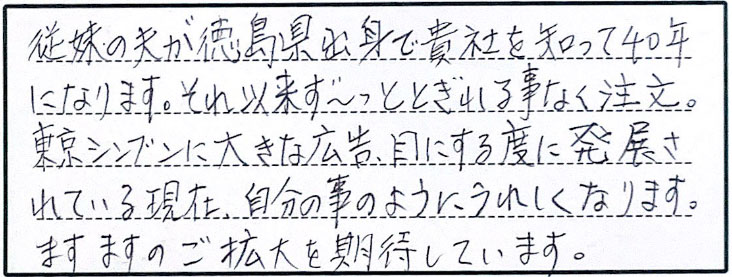 従妹の夫が徳島県出身で貴社を知って40年
になります。それ以来ず〜っととぎれる事なく注文。
東京シンブンに大きな広告、目にする度に発展さ
れている現在、自分の事のようにうれしくなります。
ますますのご拡大を期待しています。